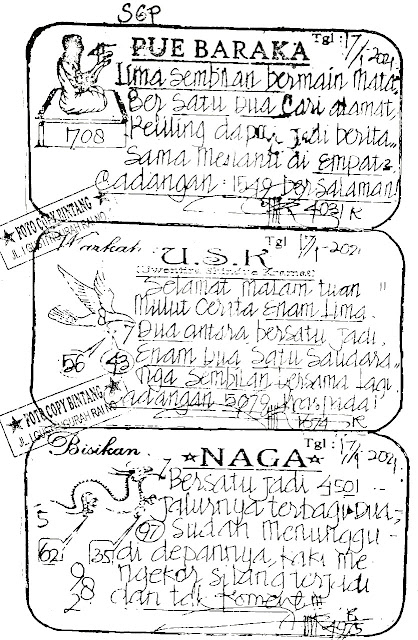 SGP
PUE BARAKA
Tgl : 17/1-2021
Lima Sembilan bermain Mata,
Ber Satu Dua Cari alamat
Keliling dapur jadi berita..
Sama Menanti di Empat2
Cadangan : 1549 bersalaman!
4031 K
708
FOTO COPY BINTANG
U.S.K
Tgl 17/1-2021
Selamat Malam tuan "
Mulut Cerita Enam Lima.
Dua antara bersatu jadi,
Enam Dua Satu Saudara..
Tiga Sembilan bersama lagi
Cadangan 5079
1674 K
7
56
43
FOTO COPY BINTANG
Bisikan
NAGA
Tgl : 17/1 2021
Bersatu jadi 4501 --
Jalurnya terbagi Dua,
97 Sudah Menunggu -
di depannya, kaki me
ngekor silang terjadi
dan tak Koment !!!
4975
7
5
62
35
9
8
2